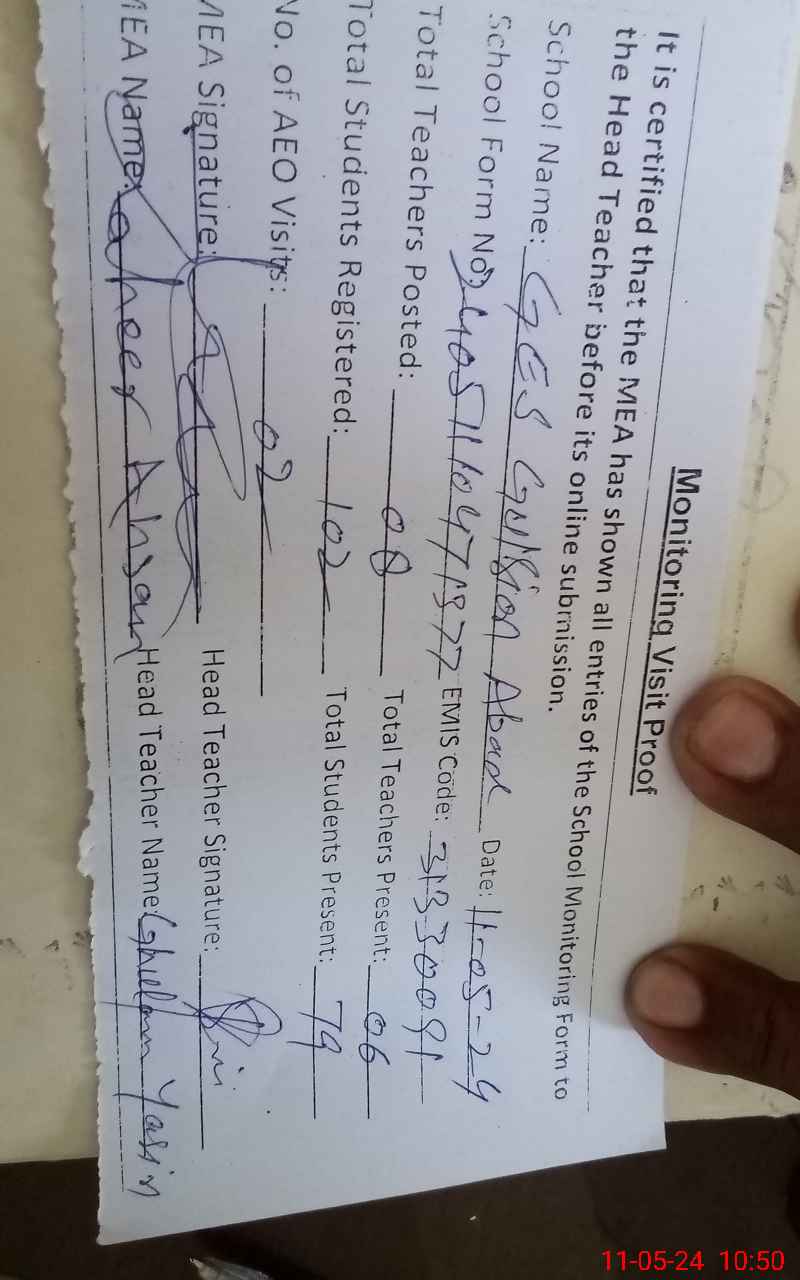 Monitoring Visit Proof
It is certified that the MEA has shown all entries of the School Monitoring Form to
the Head Teacher before its online submission.
School Name: GES Gulshan Abad Date: 11-05-24
School Form No: EMIS Code:
Total Teachers Posted: 08 Total Teachers Present: 06
Total Students Registered: 102 Total Students Present: 79
No. of AEO Visits: 02
MEA Signature: Head Teacher Signature:
MEA Name: Zaheer Ahsan Head Teacher Name: Ghulam Yasin
11-05-24 10:50